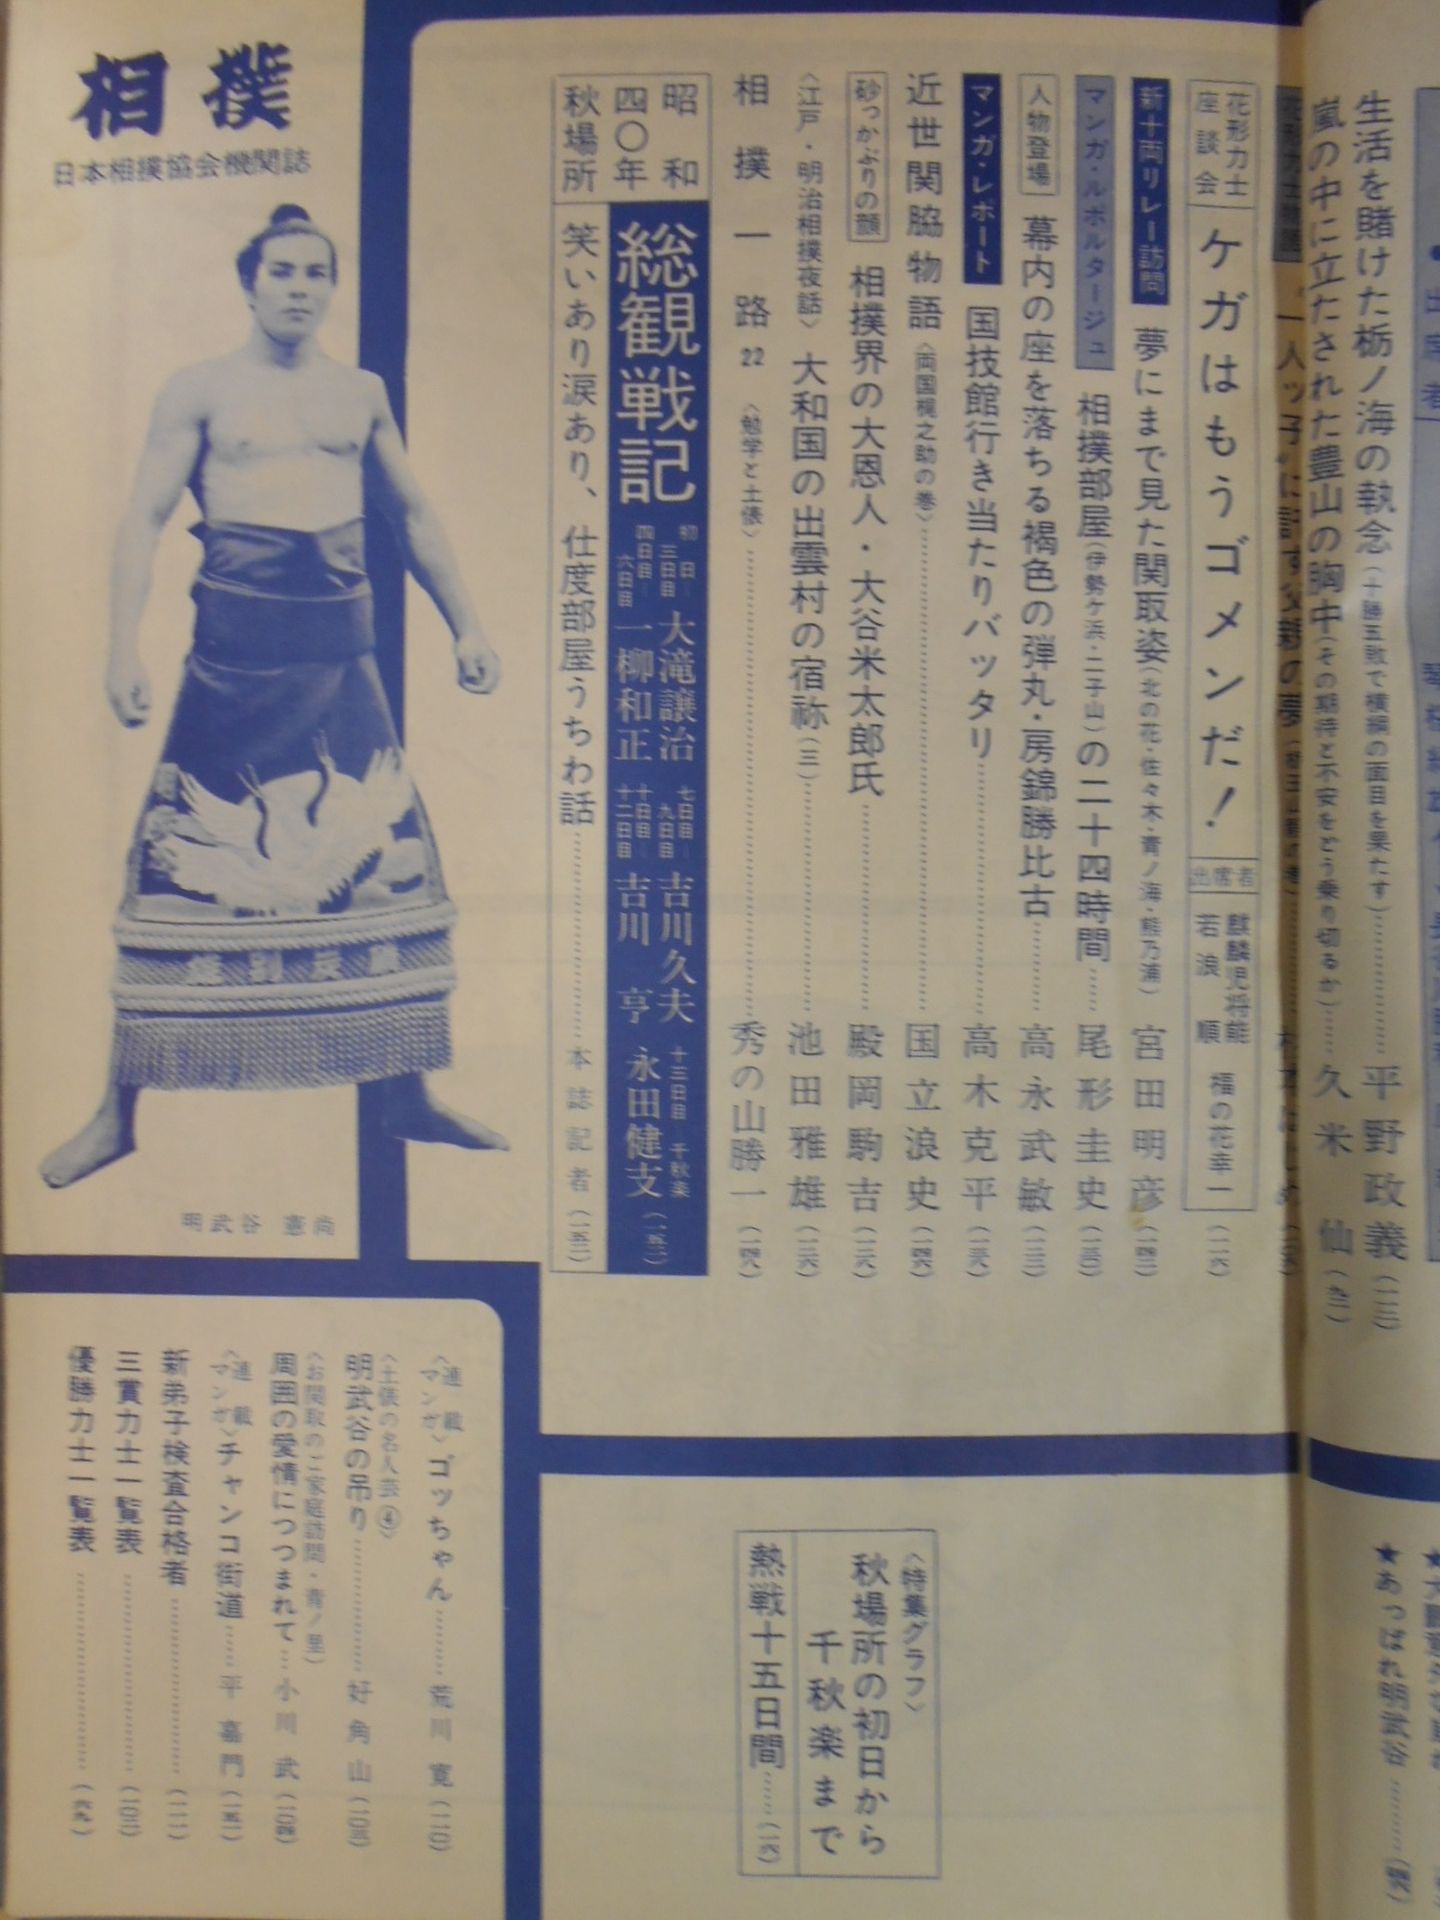 生活を賭けた栃ノ海の執念(十勝五敗で横綱の面目を果たす)……平野政義(一一二)
嵐の中に立たされた豊山の胸中(その期待と不安をどう乗り切るか)……久米 仙(九二)
花形力士座談会 ケガはもうゴメンだ! 出席者 麒麟児将能 若浪 順 福の花幸一(一一六)
新十両リレー訪問 夢にまで見た関取姿(北の花・佐々木・青ノ海・熊乃浦)宮田明彦(一四二)
マンガ・ルポルタージュ 相撲部屋(伊勢ケ浜・二子山)の二十四時間……尾形圭史(一三〇)
人物登場 幕内の座を落ちる褐色の弾丸・房錦勝比古……高永武敏(一二二)
マンガ・レポート 国技館行き当たりバッタリ……高木克平(一三八)
近世関脇物語〈両国梶之助の巻〉……国立浪史(一四六)
砂っかぶりの顔 相撲界の大恩人・大谷米太郎氏……殿岡駒吉(一三六)
〈江戸・明治相撲夜話〉大和国の出雲村の宿祢(三)……池田雅雄(一二六)
相撲一路22〈勉学と土俵〉……秀の山勝一(一四八)
昭和四〇年秋場所
総観戦記
初日―三日目 大滝譲治
四日目―六日目 一柳和正
七日目―九日目 吉川久夫
十日目―十二日目 吉川 亨
十三日目―千秋楽 永田健支(一五二)
笑いあり涙あり、仕度部屋うちわ話……本誌記者(一五二)
相撲
日本相撲協会機関誌
明武谷 憲尚
〈特集グラフ〉
秋場所の初日から
千秋楽まで
熱戦十五日間……(一六)
★あっぱれ明武谷……
〈連載マンガ〉ゴッちゃん……荒川 寛(一一〇)
〈土俵の名人芸④〉
明武谷の吊り……好角山(一〇三)
〈お関取のご家庭訪問・青ノ里〉
周囲の愛情につつまれて…小川 武(一〇四)
〈連載マンガ〉チャンコ街道……平 嘉門(一五一)
新弟子検査合格者……(一一一)
三賞力士一覧表……(一〇二)
優勝力士一覧表……(六九)